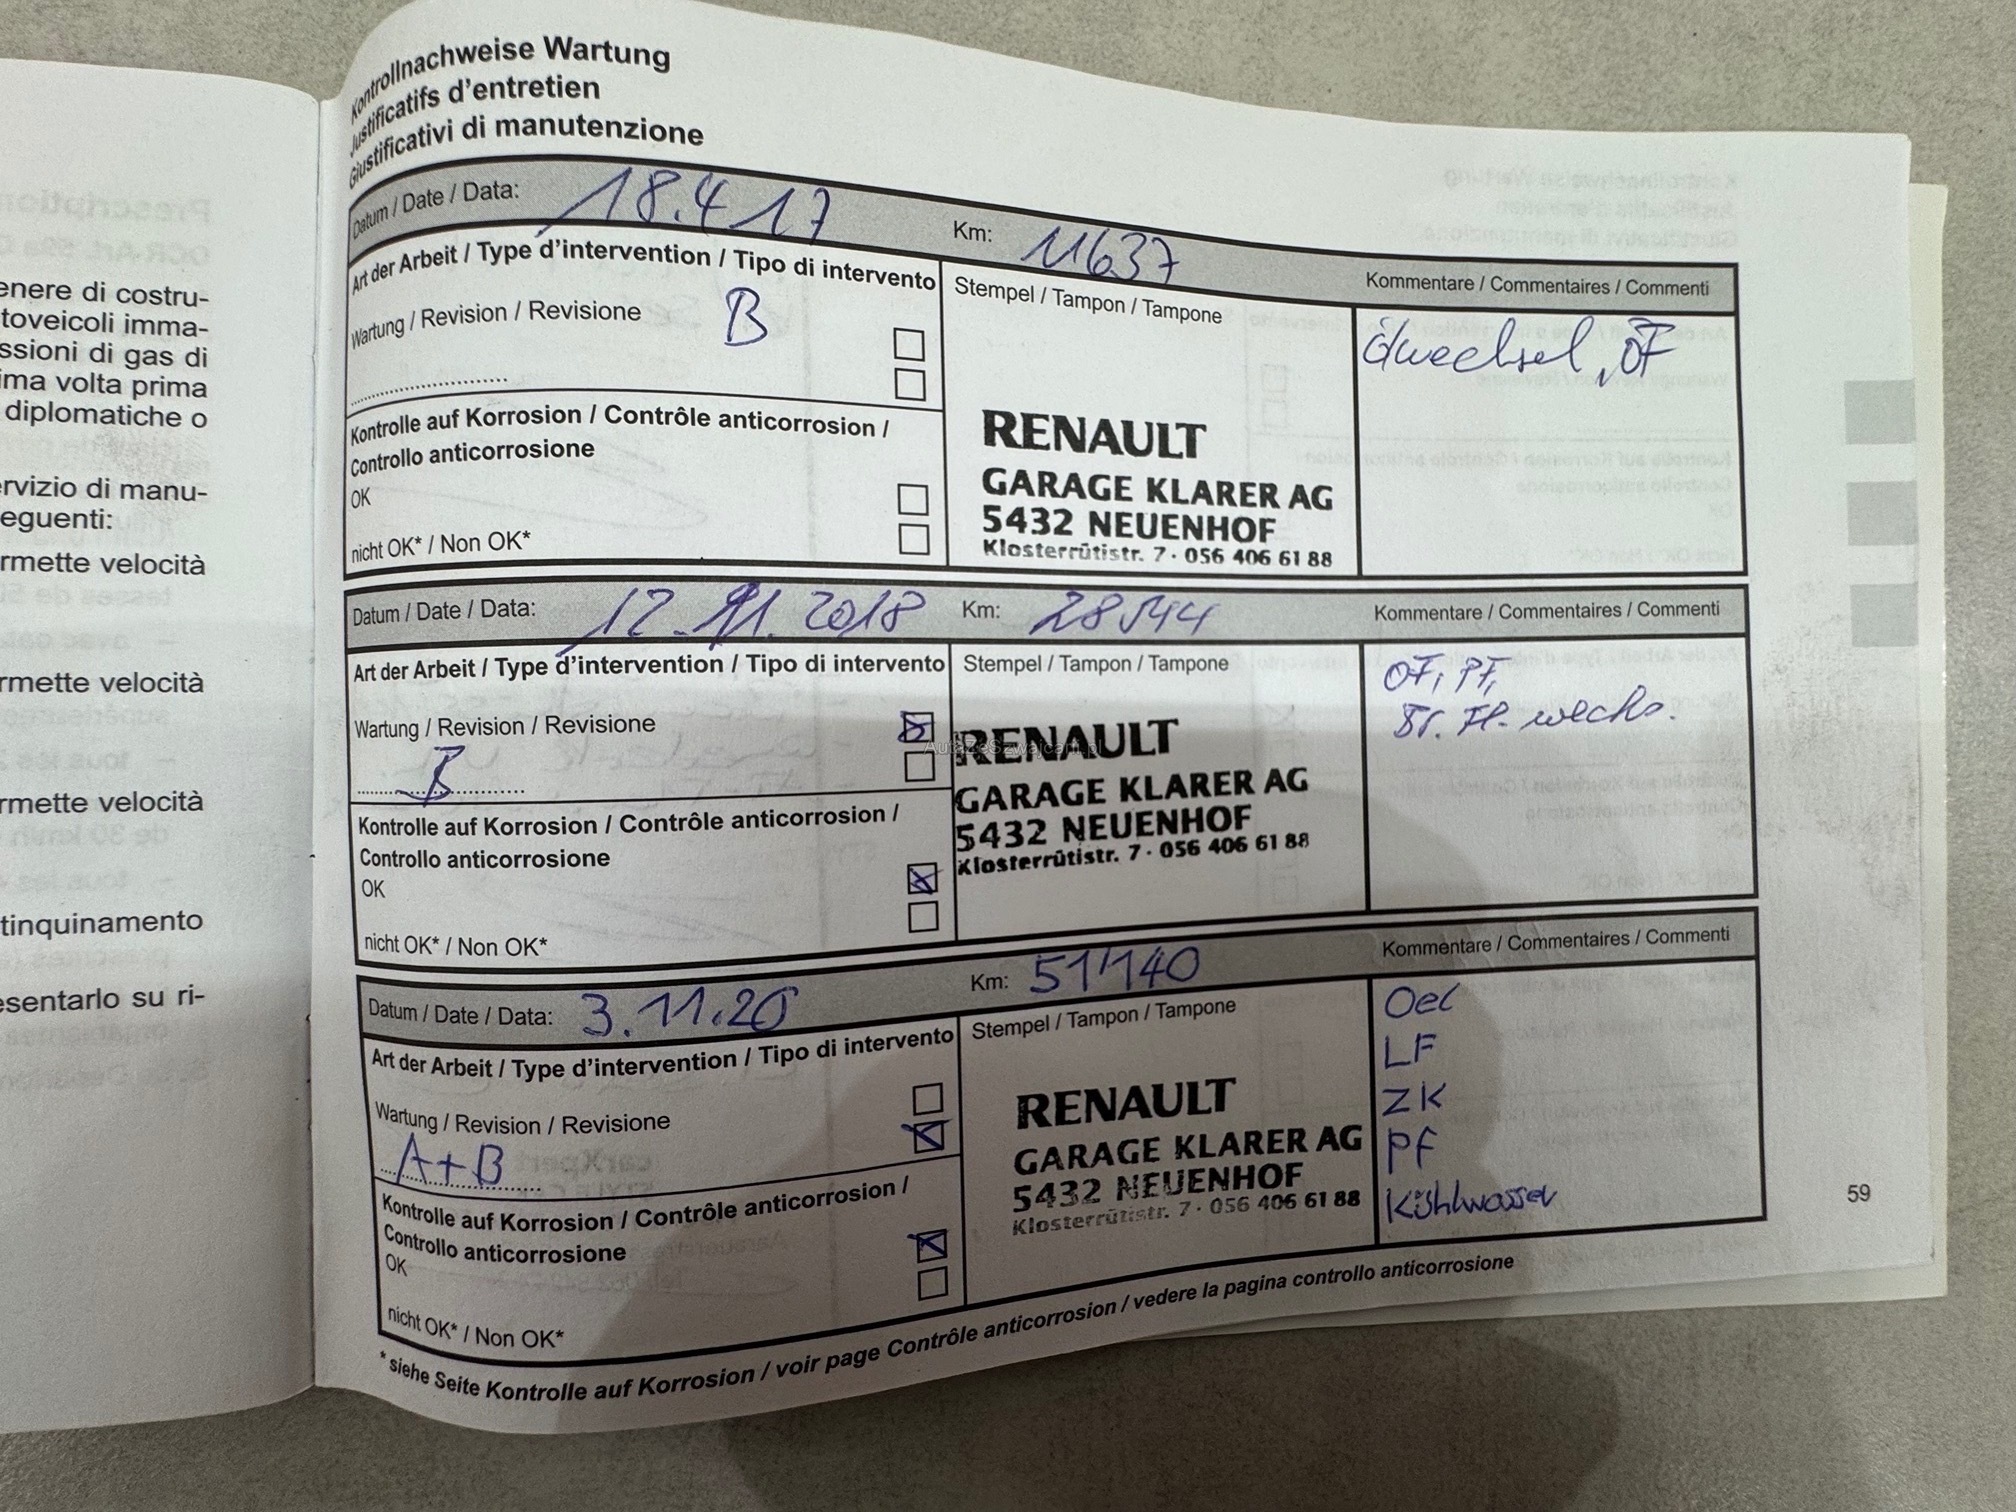 enere di costru-
toveicoli imma-
ssioni di gas di
ima volta prima
diplomatiche o
rvizio di manu-
eguenti:
rmette velocità
rmette velocità
rmette velocità
tinquinamento
esentarlo su ri-
Kontrollnachweise Wartung
Justificatifs d'entretien
Giustificativi di manutenzione
Datum / Date / Data: 18.4.17 Km: 11637 Kommentare / Commentaires / Commenti
Art der Arbeit / Type d'intervention / Tipo di intervento
Stempel / Tampon / Tampone
Wartung / Revision / Revisione B
Kontrolle auf Korrosion / Contrôle anticorrosion /
Controllo anticorrosione
OK
nicht OK* / Non OK*
RENAULT
GARAGE KLARER AG
5432 NEUENHOF
Klosterrütistr. 7 · 056 406 61 88
Ölwechsel, ÖF
Datum / Date / Data: 12.11.2018 Km: 28544 Kommentare / Commentaires / Commenti
Art der Arbeit / Type d'intervention / Tipo di intervento
Stempel / Tampon / Tampone
Wartung / Revision / Revisione
B
Kontrolle auf Korrosion / Contrôle anticorrosion /
Controllo anticorrosione
OK
nicht OK* / Non OK*
AutaZeSzwajcarii.pl
RENAULT
GARAGE KLARER AG
5432 NEUENHOF
Klosterrütistr. 7 · 056 406 61 88
OF, PF,
Br. Fl. wechs.
Datum / Date / Data: 3.11.20 Km: 51'140 Kommentare / Commentaires / Commenti
Art der Arbeit / Type d'intervention / Tipo di intervento
Stempel / Tampon / Tampone
Wartung / Revision / Revisione
A+B
Kontrolle auf Korrosion / Contrôle anticorrosion /
Controllo anticorrosione
OK
nicht OK* / Non OK*
RENAULT
GARAGE KLARER AG
5432 NEUENHOF
Klosterrütistr. 7 · 056 406 61 88
Oel
LF
ZK
PF
Kühlwasser
* siehe Seite Kontrolle auf Korrosion / voir page Contrôle anticorrosion / vedere la pagina controllo anticorrosione
59